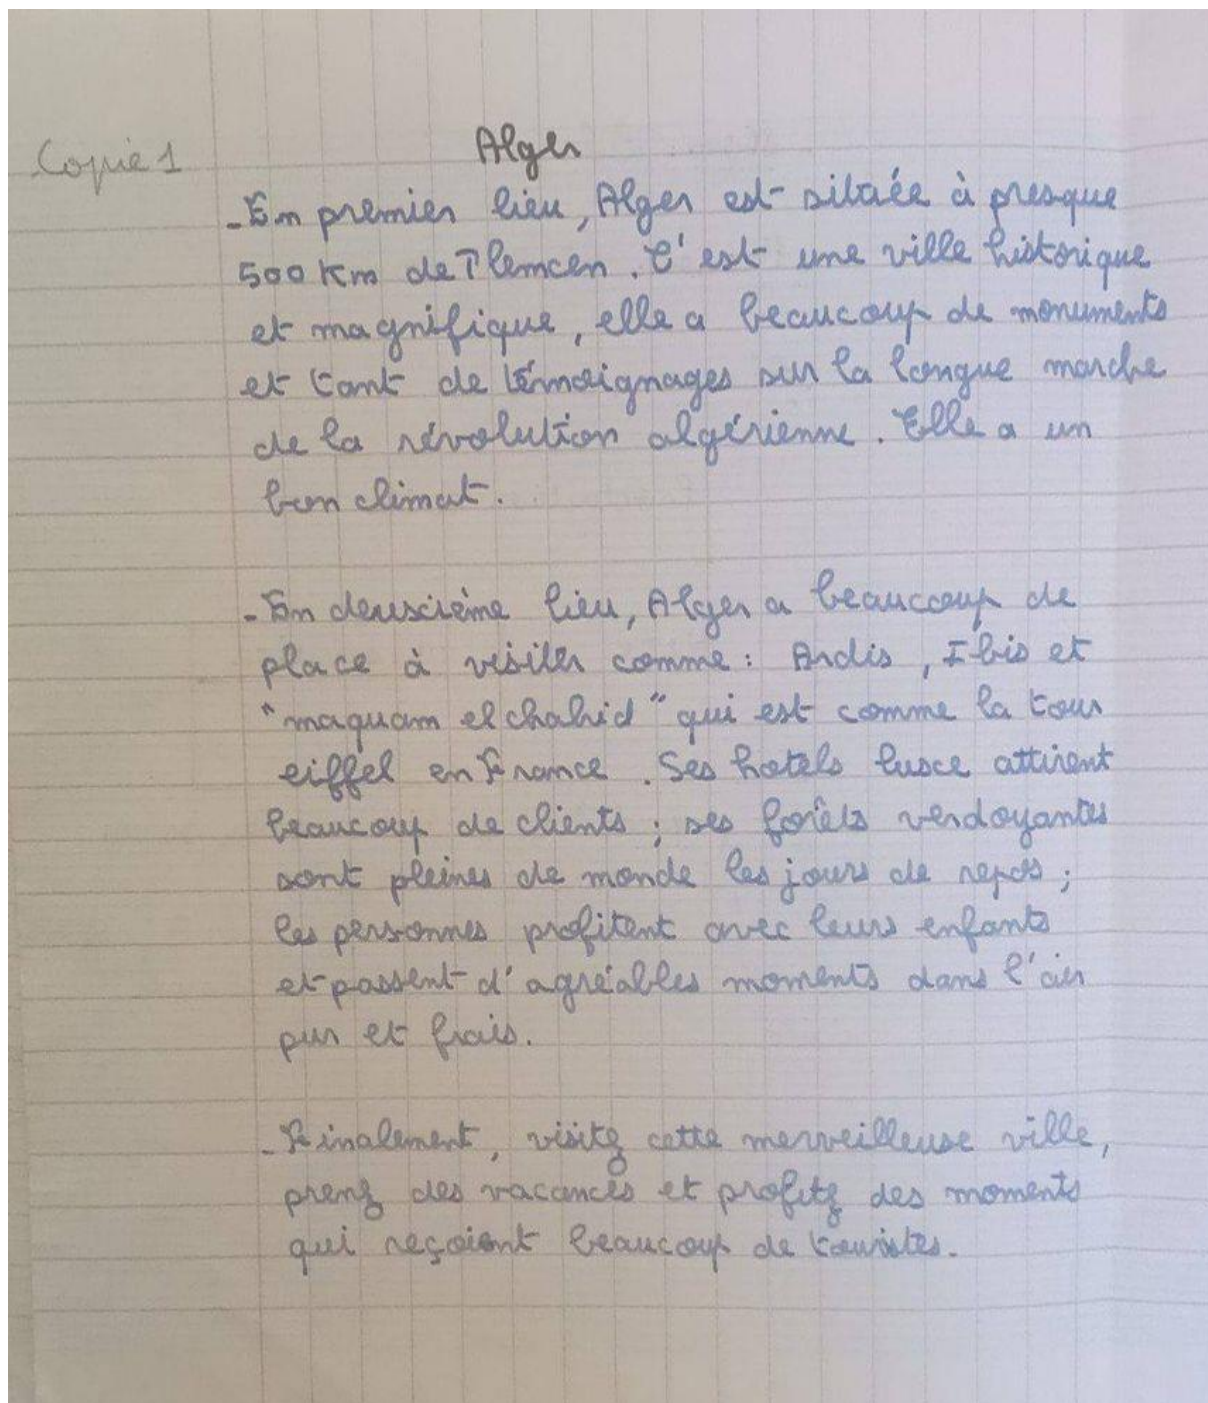 Copie 1
Alger
- En premier lieu, Alger est située à presque
500 Km de Tlemcen. C'est une ville historique
et magnifique, elle a beaucoup de monuments
et tant de témoignages sur la longue marche
de la révolution algérienne. Elle a un
bon climat.
- En deuxième lieu, Alger a beaucoup de
place à visiter comme : Ardis, Ibis et
"maquam el chahid" qui est comme la tour
eiffel en France. Ses hotels luxe attirent
beaucoup de clients ; ses forêts verdoyantes
sont pleines de monde les jours de repos ;
les personnes profitent avec leurs enfants
et passent d'agréables moments dans l'air
pur et frais.
- Finalement, visitez cette merveilleuse ville,
prenz des vacances et profitez des moments
qui reçoient beaucoup de touristes.